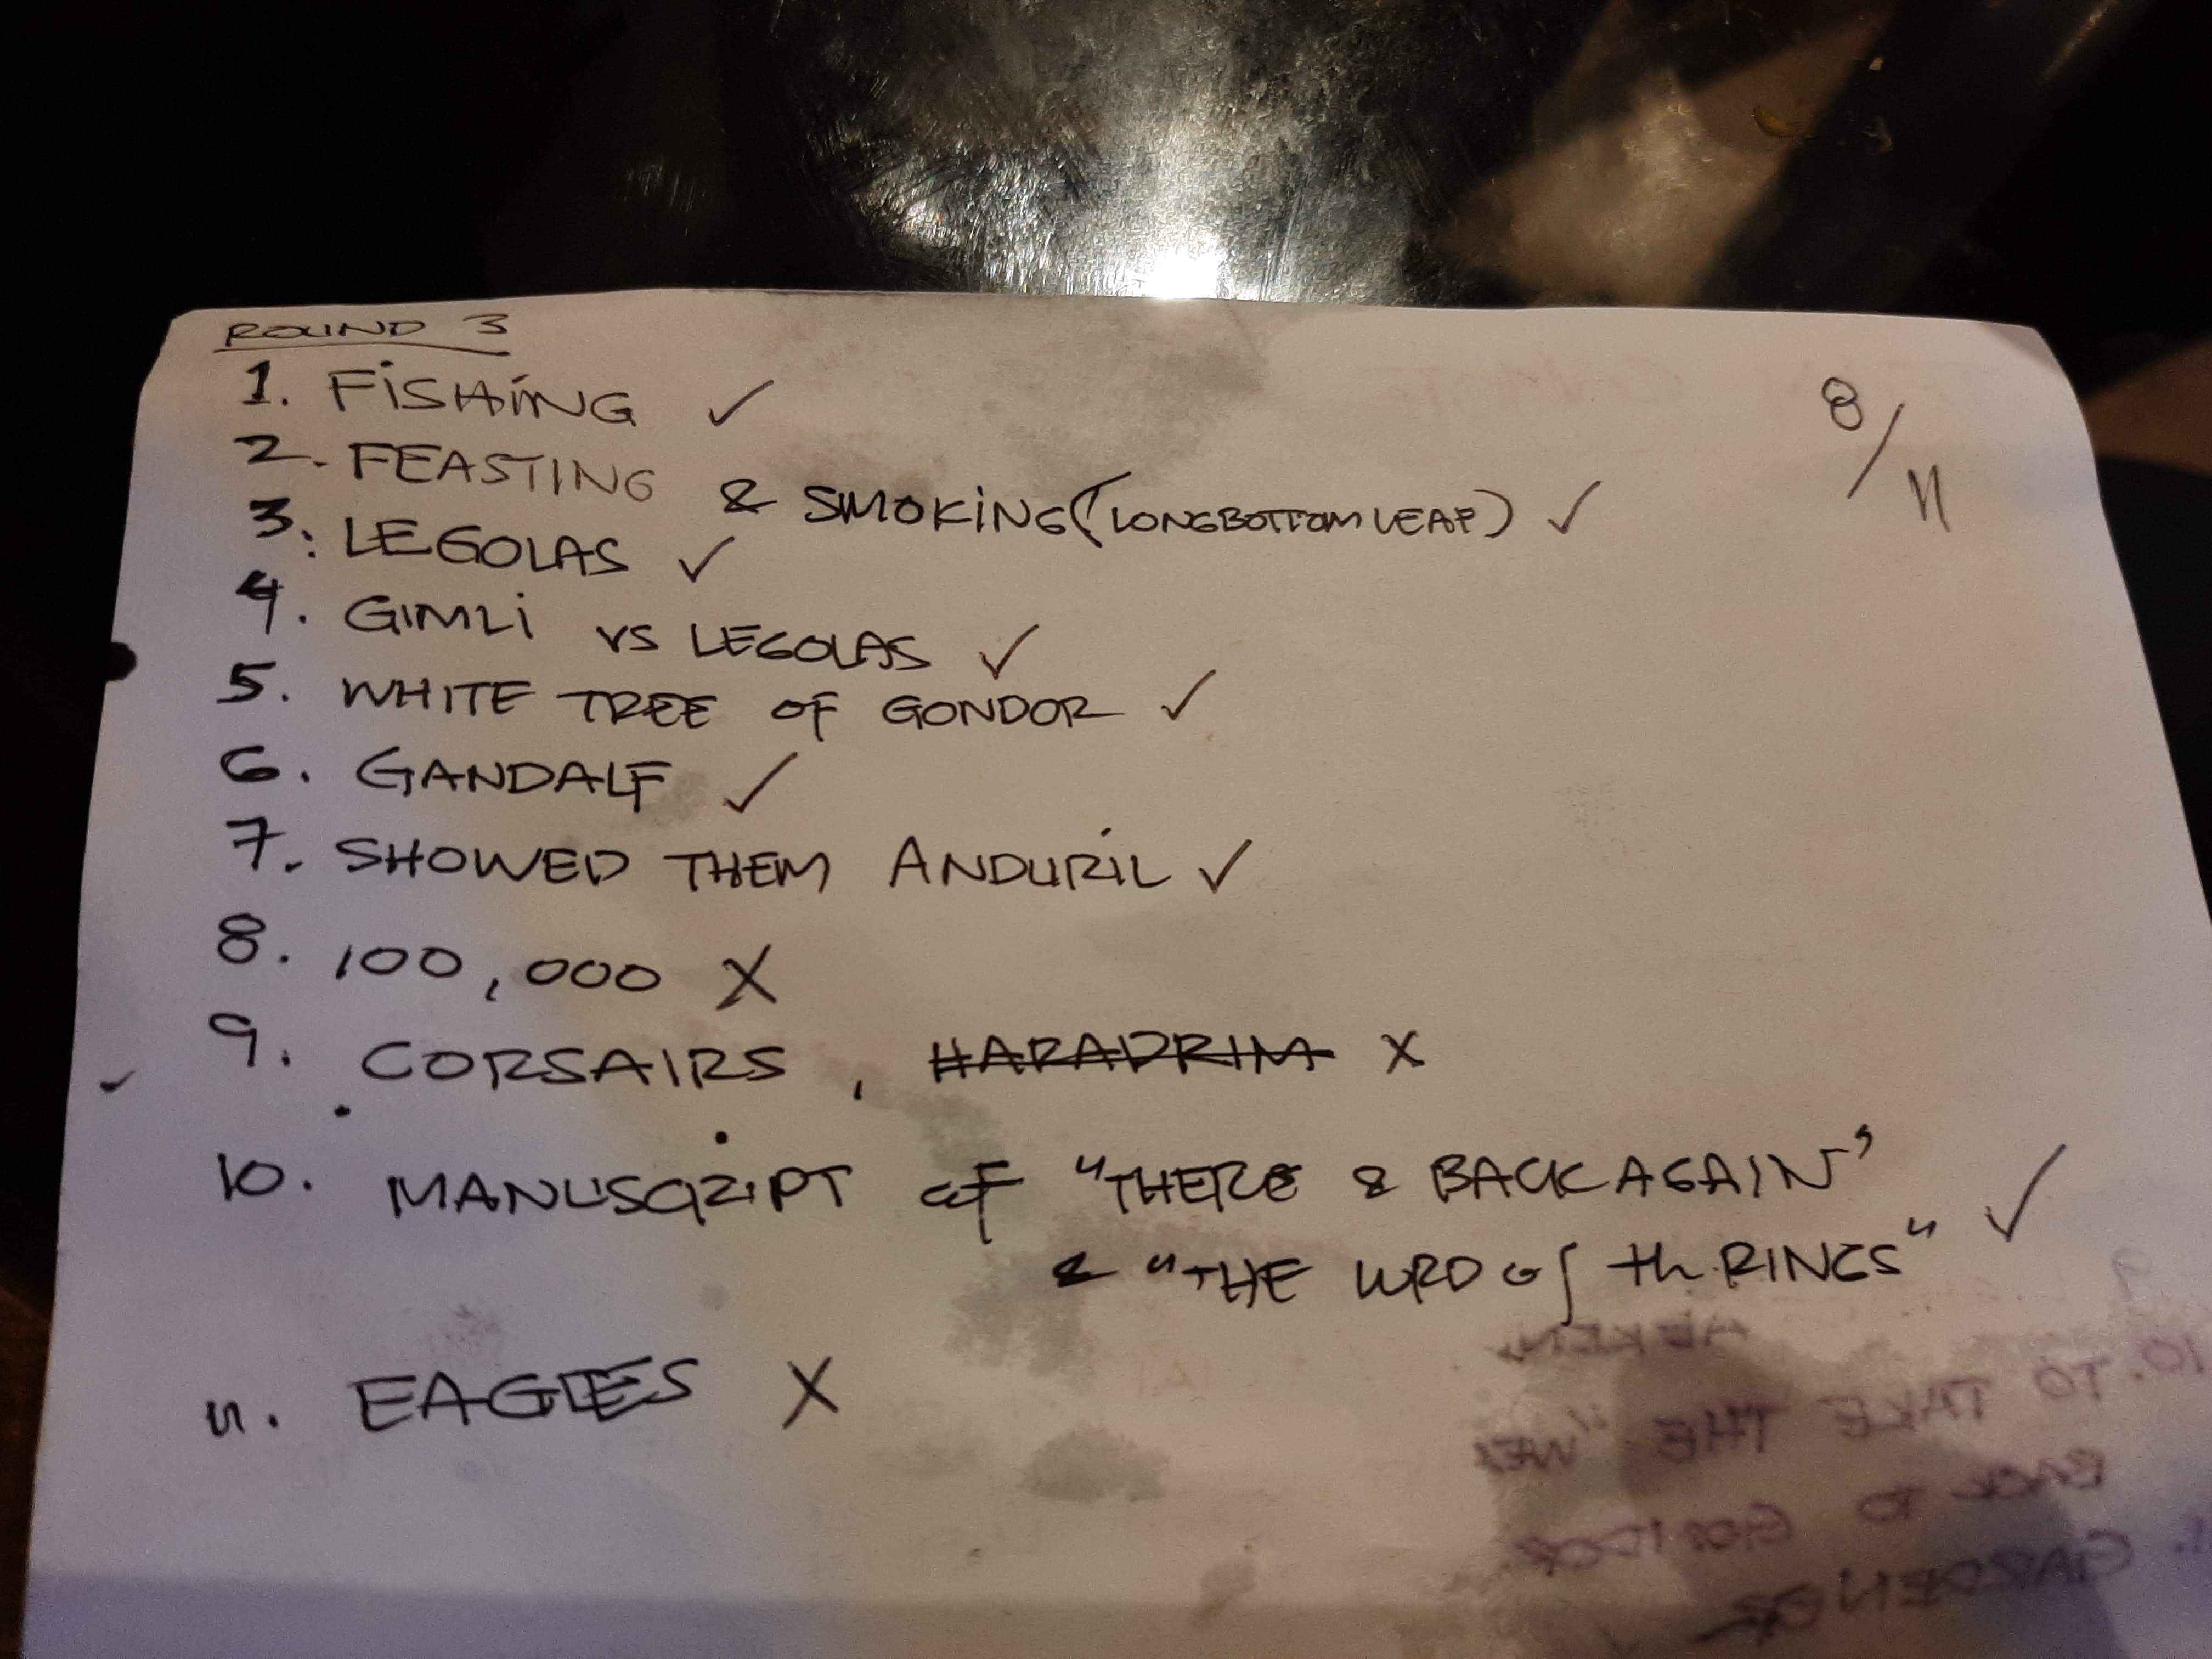 ROUND 3
8/11
1. FISHING ✓
2. FEASTING & SMOKING (LONGBOTTOM LEAF) ✓
3. LEGOLAS ✓
4. GIMLI VS LEGOLAS ✓
5. WHITE TREE OF GONDOR ✓
6. GANDALF ✓
7. SHOWED THEM ANDURIL ✓
8. 100,000 X
9. CORSAIRS, HARADRIM X
10. MANUSCRIPT OF "THERE & BACK AGAIN"
& "THE LORD of th RINGS" ✓
11. EAGLES X
9
10. TO TAKE THE
BACK TO GONDOR
GARDENER